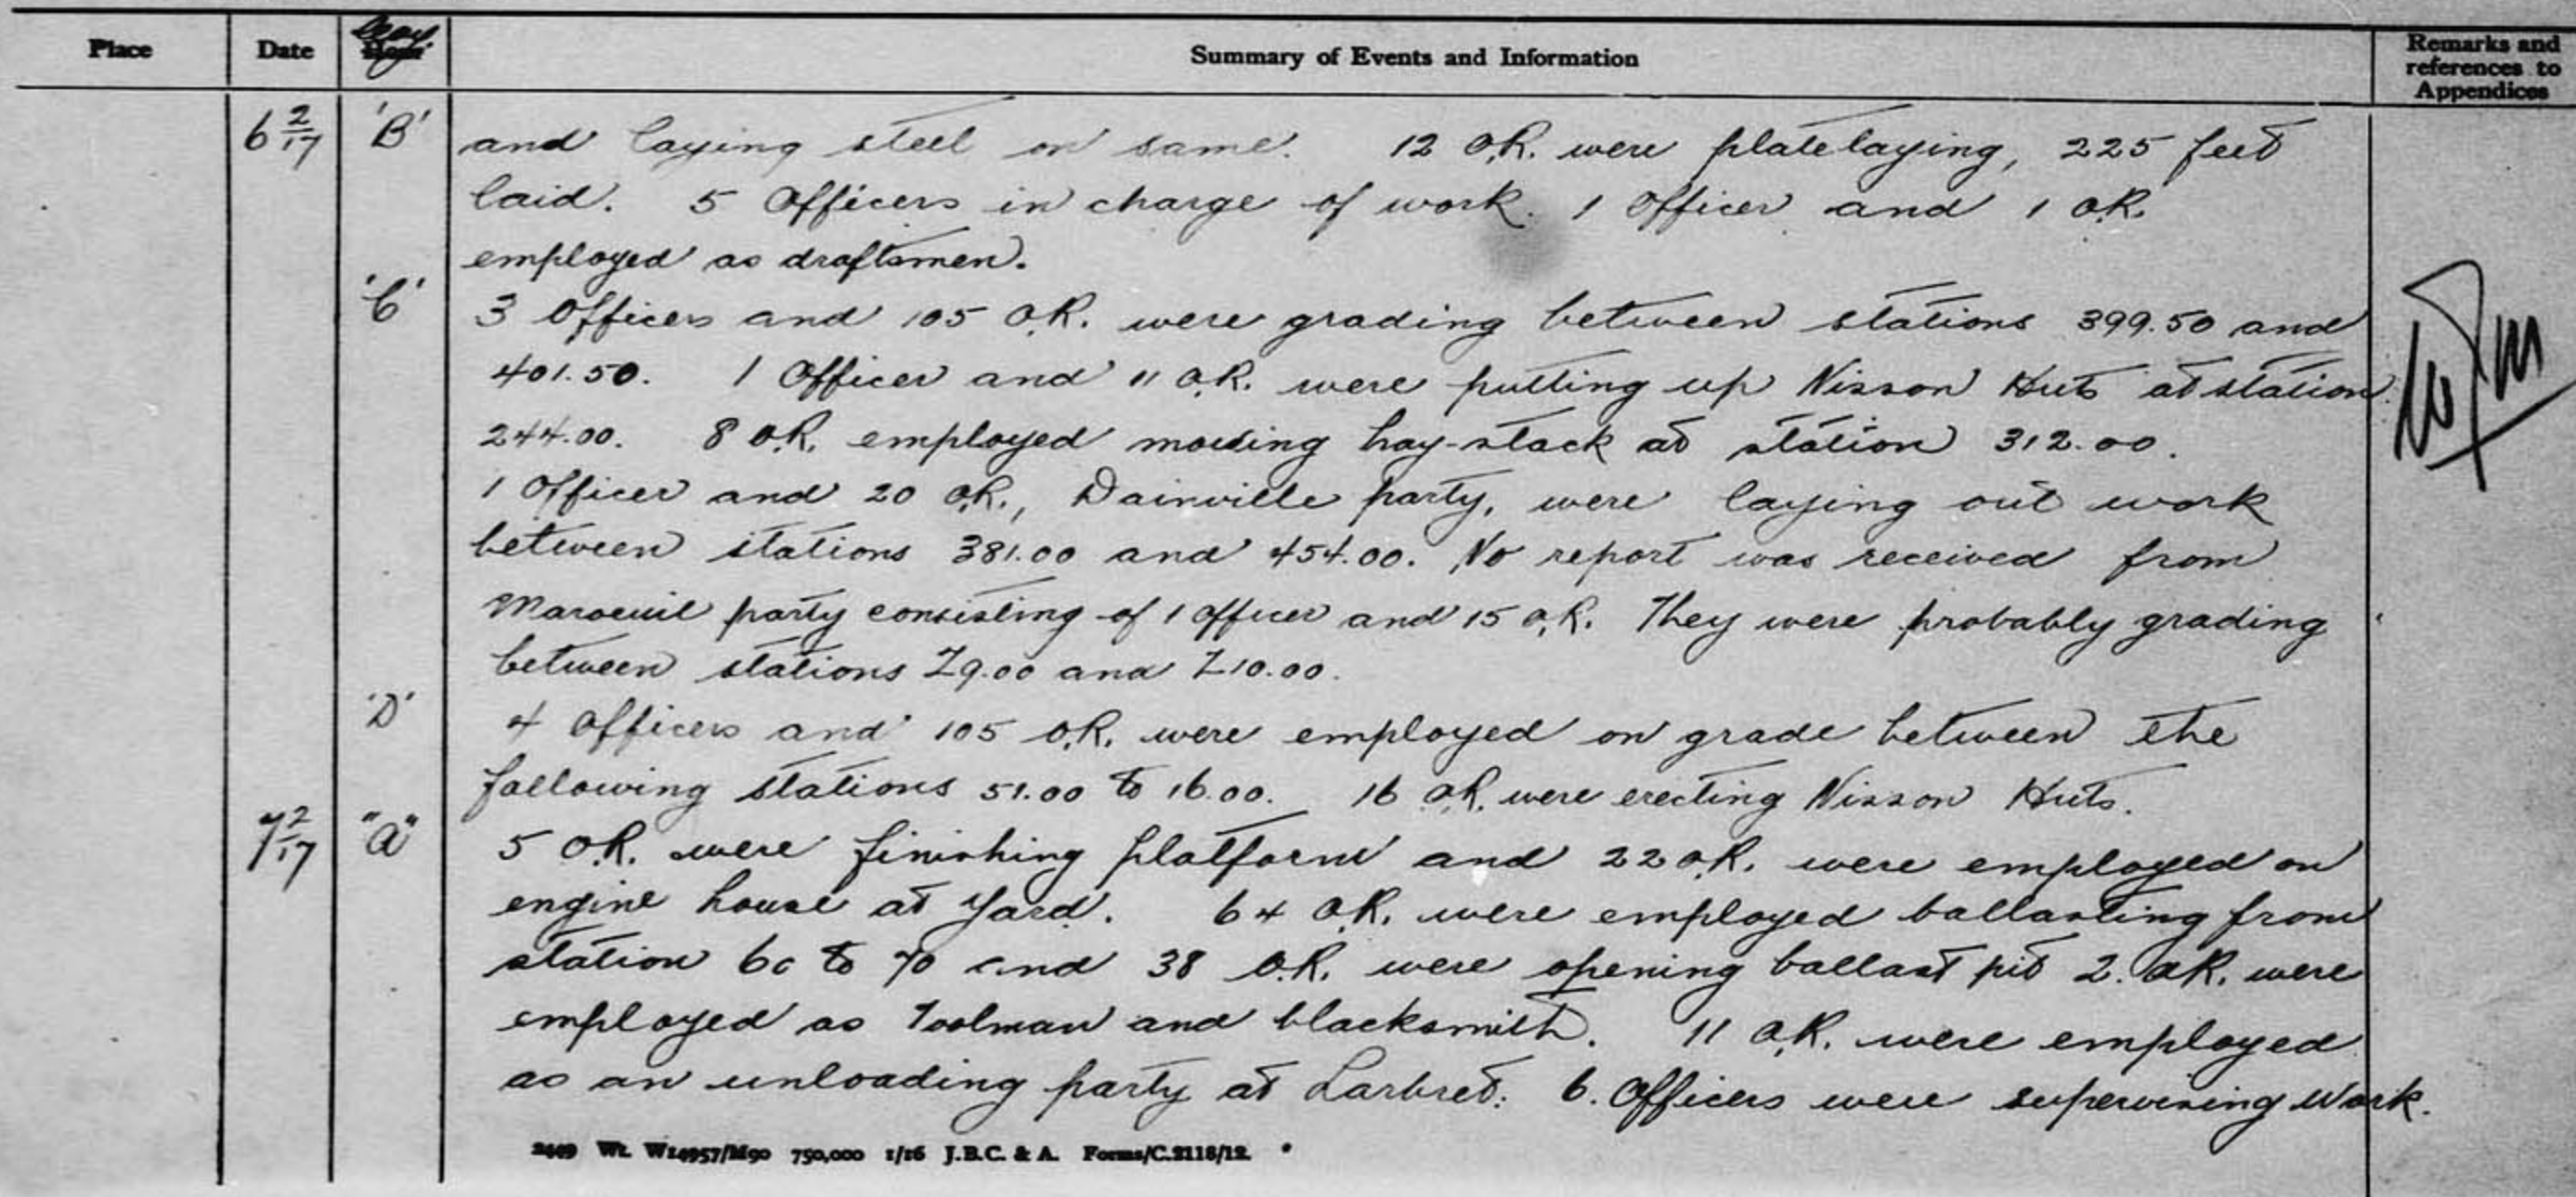 Place Date Coy Hour Summary of Events and Information Remarks and references to Appendices
6 2/17 'B' and laying steel on same. 12 O.R. were platelaying, 225 feet
laid. 5 Officers in charge of work. 1 Officer and 1 O.R.
employed as draftsmen.
'C' 3 Officers and 105 O.R. were grading between stations 399.50 and
401.50. 1 Officer and 11 O.R. were putting up Nisson Huts at station
244.00. 8 O.R. employed moving hay-stack at station 312.00.
1 Officer and 20 O.R., Dainville party, were laying out work
between stations 381.00 and 454.00. No report was received from
Maroeuil party consisting of 1 Officer and 15 O.R. They were probably grading
between stations Z9.00 and Z10.00.
'D' 4 Officers and 105 O.R. were employed on grade between the
following stations 51.00 to 16.00. 16 O.R. were erecting Nisson Huts.
7 2/17 "A" 5 O.R. were finishing platform and 22 O.R. were employed on
engine house at Yard. 64 O.R. were employed ballasting from
station 60 to 70 and 38 O.R. were opening ballast pit 2. O.R. were
employed as Toolman and blacksmith. 11 O.R. were employed
as an unloading party at Larbret. 6. Officers were supervising Work.
2449 Wt. W14957/M90 750,000 1/16 J.B.C. & A. Forms/C.2118/12.